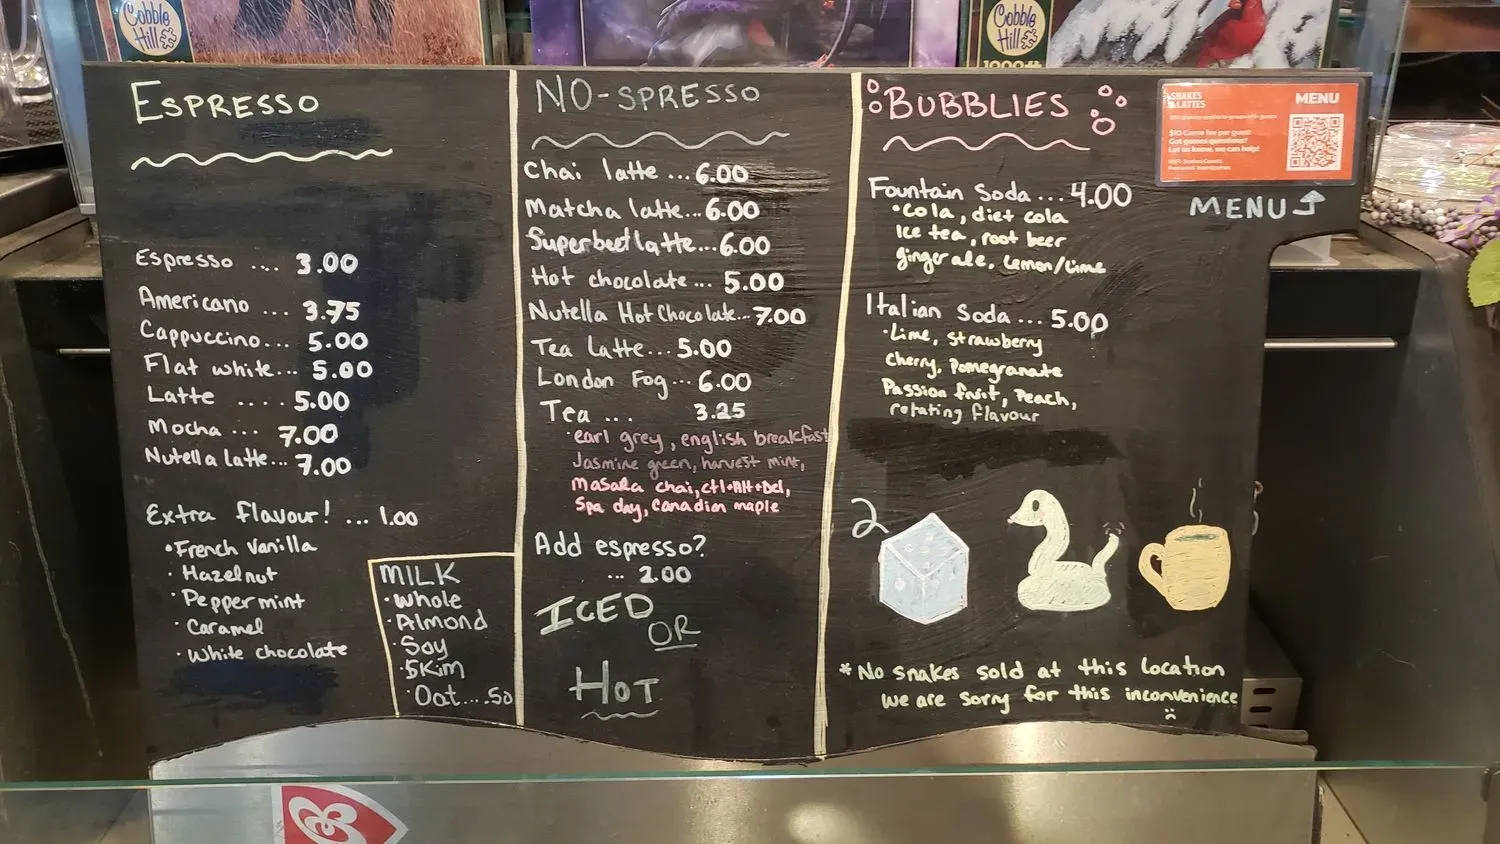 Cobble
Hill
Cobble
Hill
ESPRESSO
Espresso .... 3.00
Americano ... 3.75
Cappuccino... 5.00
Flat white... 5.00
Latte .... 5.00
Mocha ... 7.00
Nutella latte... 7.00
Extra flavour! ... 1.00
•French Vanilla
• Hazelnut
• Peppermint
• Caramel
• White chocolate
MILK
•whole
•Almond
•Soy
•Skim
•Oat....50
NO-SPRESSO
Chai latte ...6.00
Matcha latte...6.00
Superbeet latte...6.00
Hot chocolate... 5.00
Nutella Hot Chocolate...7.00
Tea latte... 5.00
London Fog... 6.00
Tea ... 3.25
•earl grey, english breakfast
Jasmine green, harvest mint,
masala chai, ctl+Alt+Del,
Spa day, Canadian maple
Add espresso?
... 2.00
ICED
OR
HOT
BUBBLIES
Fountain Soda... 4.00
•Cola, diet cola
Ice tea, root beer
ginger ale, Lemon/Lime
Italian Soda ... 5.00
•Lime, strawberry
Cherry, Pomegranate
Passion fruit, Peach,
rotating flavour
SNAKES
& LATTES
MENU
$10 Game fee per guest
Got games questions?
Let us know, we can help!
MENU
* No snakes sold at this location
we are sorry for this inconvenience